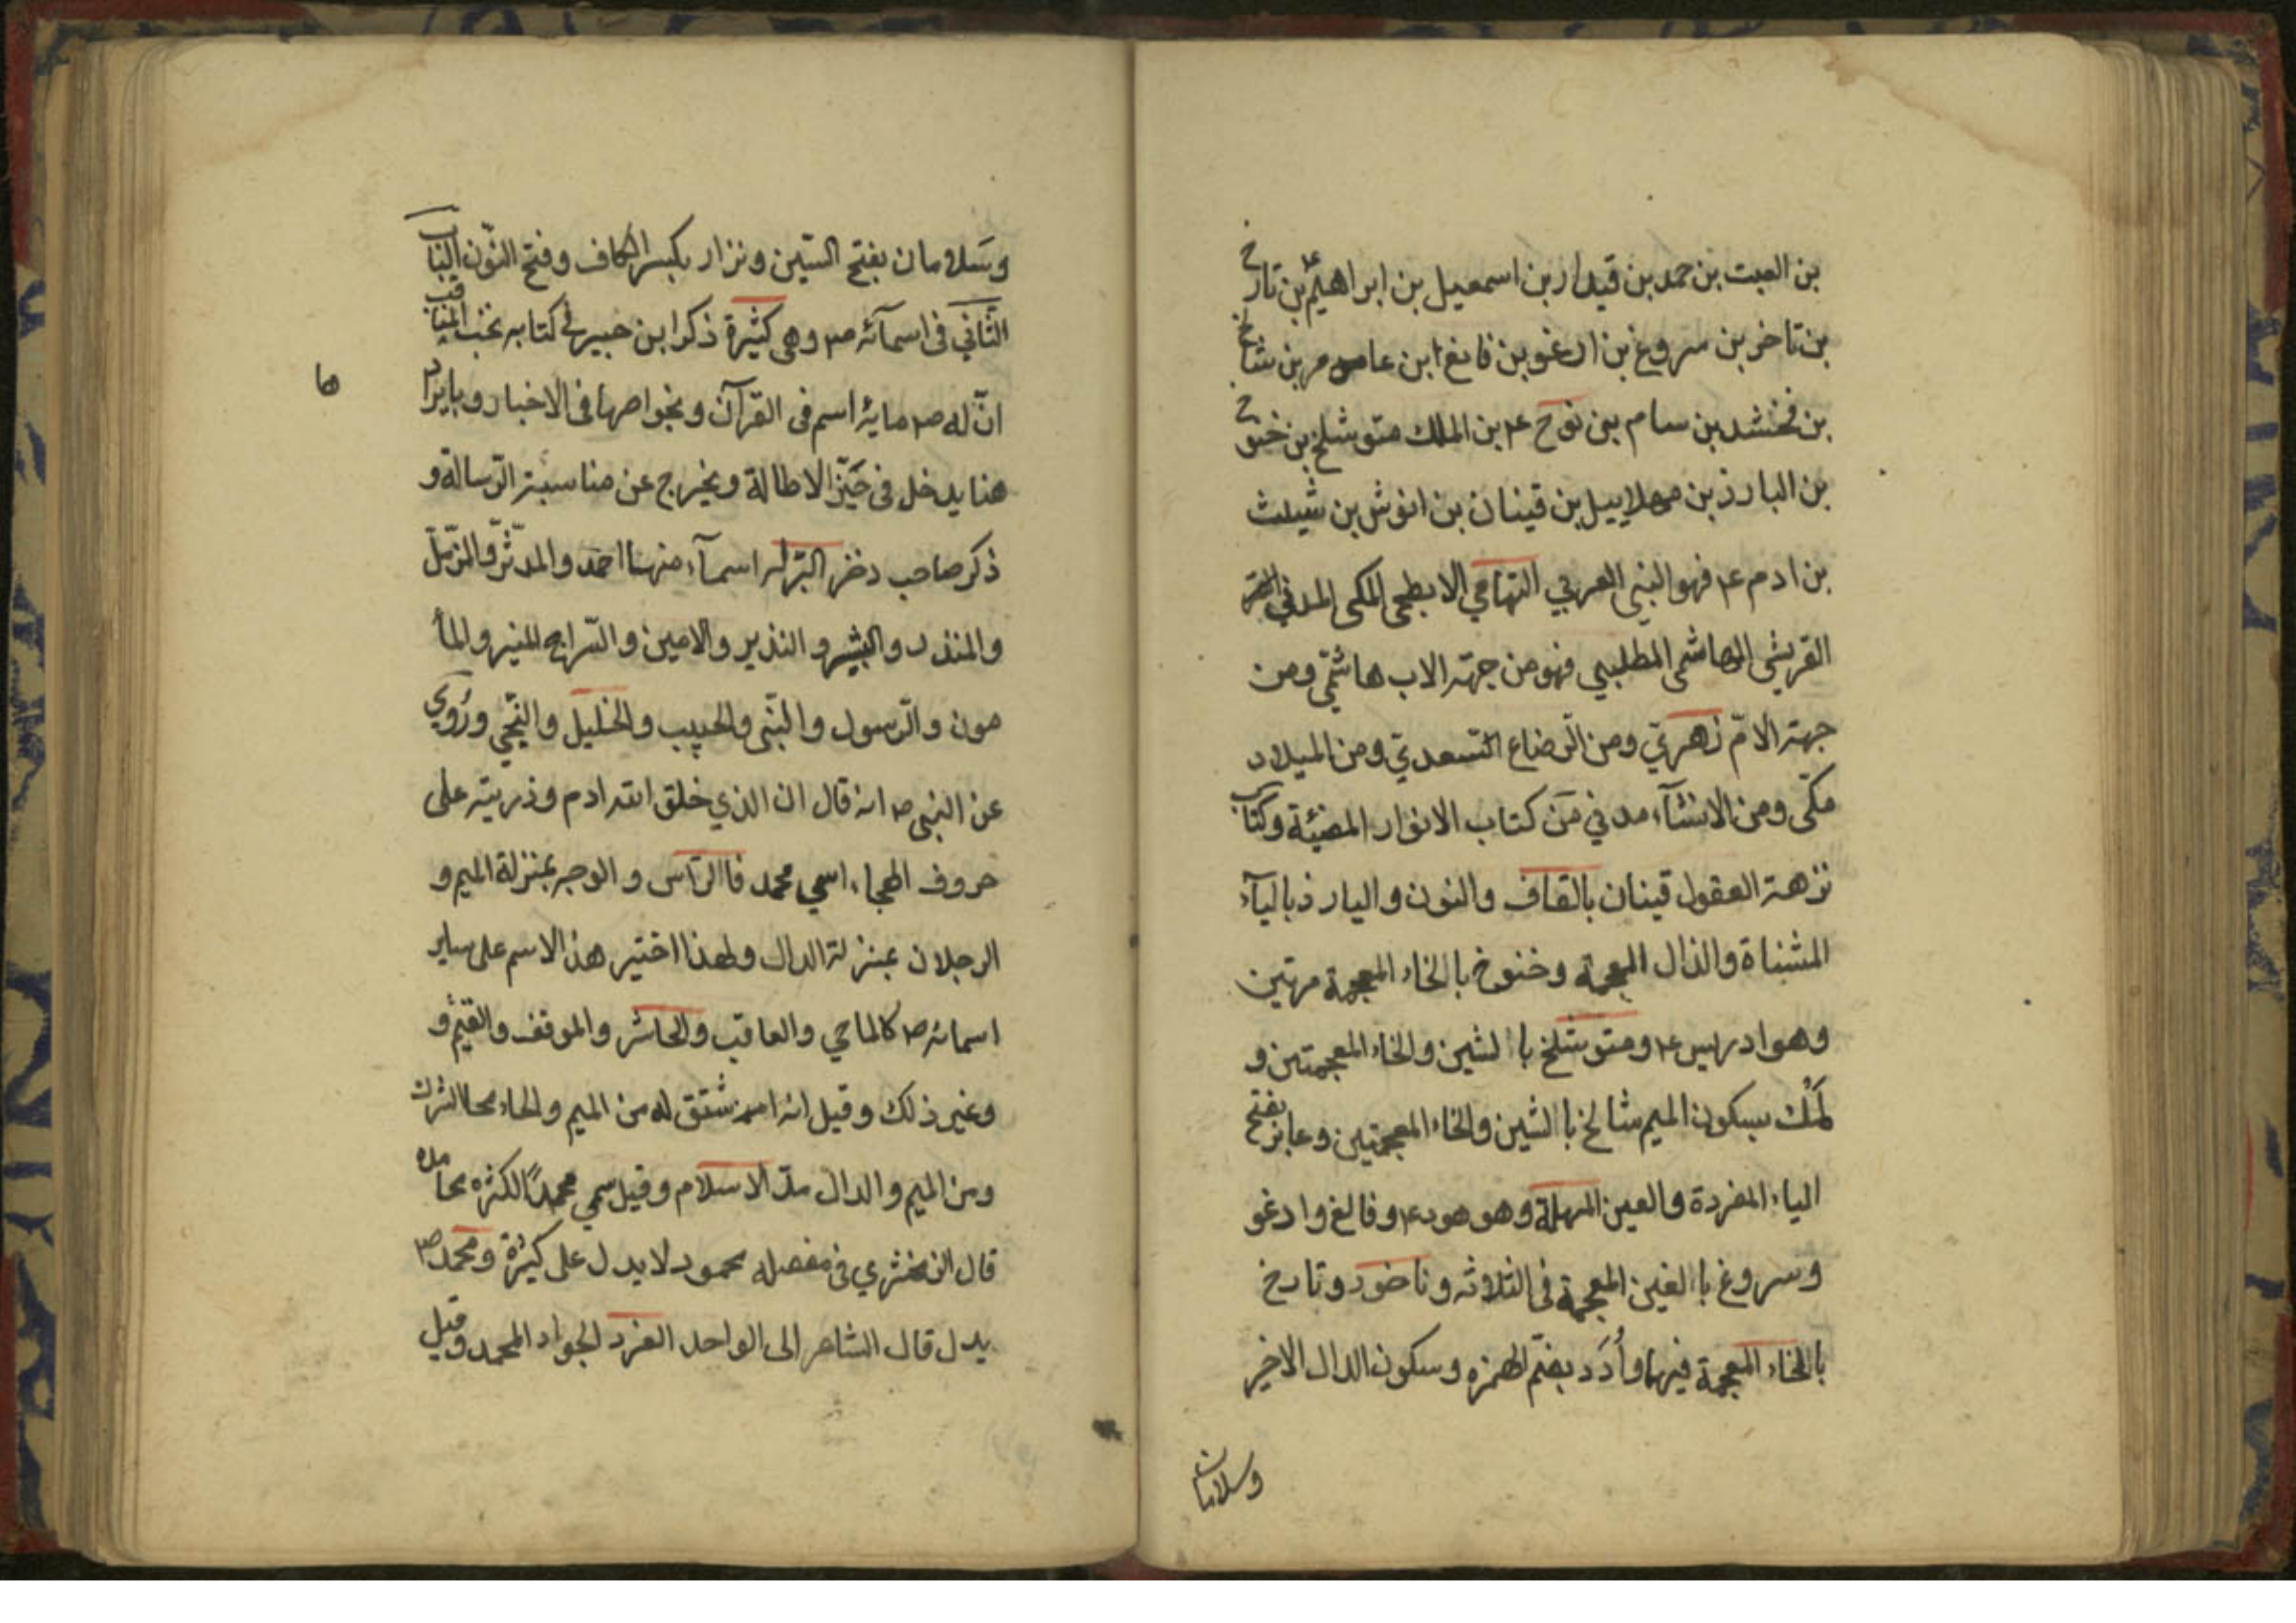 بن العبت بن حمد بن قيدار بن اسمعيل بن ابراهيم ع بن تارخ
بن تاخر بن سروغ بن ارغو بن فانغ ابن عامر بن شالخ
بن فخشد بن سام بن نوح ع بن الملك متوشلخ بن خنوخ
بن البارذ بن مهلاييل بن قينان بن انوش بن شيث
بن ادم ع فهو النبي العربي التهامي الابطحي المكي المدني
القريشي الهاشمي المطلبي فهو من جهة الاب هاشمّي ومن
جهة الامّ زهريّ ومن الرّضاع السّعديّ ومن الميلاد
مكّى ومن الانشآء مدني من كتاب الانوار المضيئة وكتاب
نزهة العقول قينان بالقاف والنون واليارذ باليآء
المثناة والذال المعجمة وخنوخ بالخاء المعجمة مرتين
وهو ادريس ع ومتوشلخ باالشين والخاء المعجمتين و
لَمْك بسكون الميم شالخ باالشين والخاء المعجمتين وعابر بفتح
الياء المفردة والعين المهملة وهو هود ع وفالغ وارغو
وسروغ باالغين المعجمة فى الثلاثه وناخور وتارخ
باالخاء المعجمة فيهما وأُدَد بضم الهمزه وسكون الدال الاخير
وسلامان
وسَلامان بفتح السّين ونزار بكسر الكاف وفتح النّون الباب
الثّاني فى اسمآئه ص وهى كثيرة ذكر ابن جبير فى كتابه نخب المناقب
انّ له ص ماية اسم فى القرآن وبخواصها فى الاخبار وبايرادها
هنا يدخل فى حَيّز الاطالة ويخرج عن مناسبة الرّسالة و
ذكر صاحب دخر البرّ له اسمآء منها احمد والمدّثّر والمزّمّل
والمنذر والبشير والنذير والامين والسّراج المنير والمأ
مون والرّسول والنبّى والحبيب والخليل والنجّي ورُوي
عن النبى ص انه قال ان الذي خلق الله ادم وذريته على
حروف الهجاء اسمي محمد فاالرّأس والوجه بمنزلة الميم و
الرجلان بمنزلة الدال ولهذا اختير هذ الاسم على ساير
اسمائه ص كالماحي والعاقب والحاشر والموقف والقيّم و
وغير ذلك وقيل انه اسم شتق له من الميم والحاء محا الشرك
ومن الميم والدال مدّ الاسلام وقيل سمي محمدًا لكثره محامده
قال الزمخشري فى مفصله محمود لا يدل على كثرة ومحمد ص
يدل قال الشاعر الى الواحد الفرد الجواد المحمد وقيل